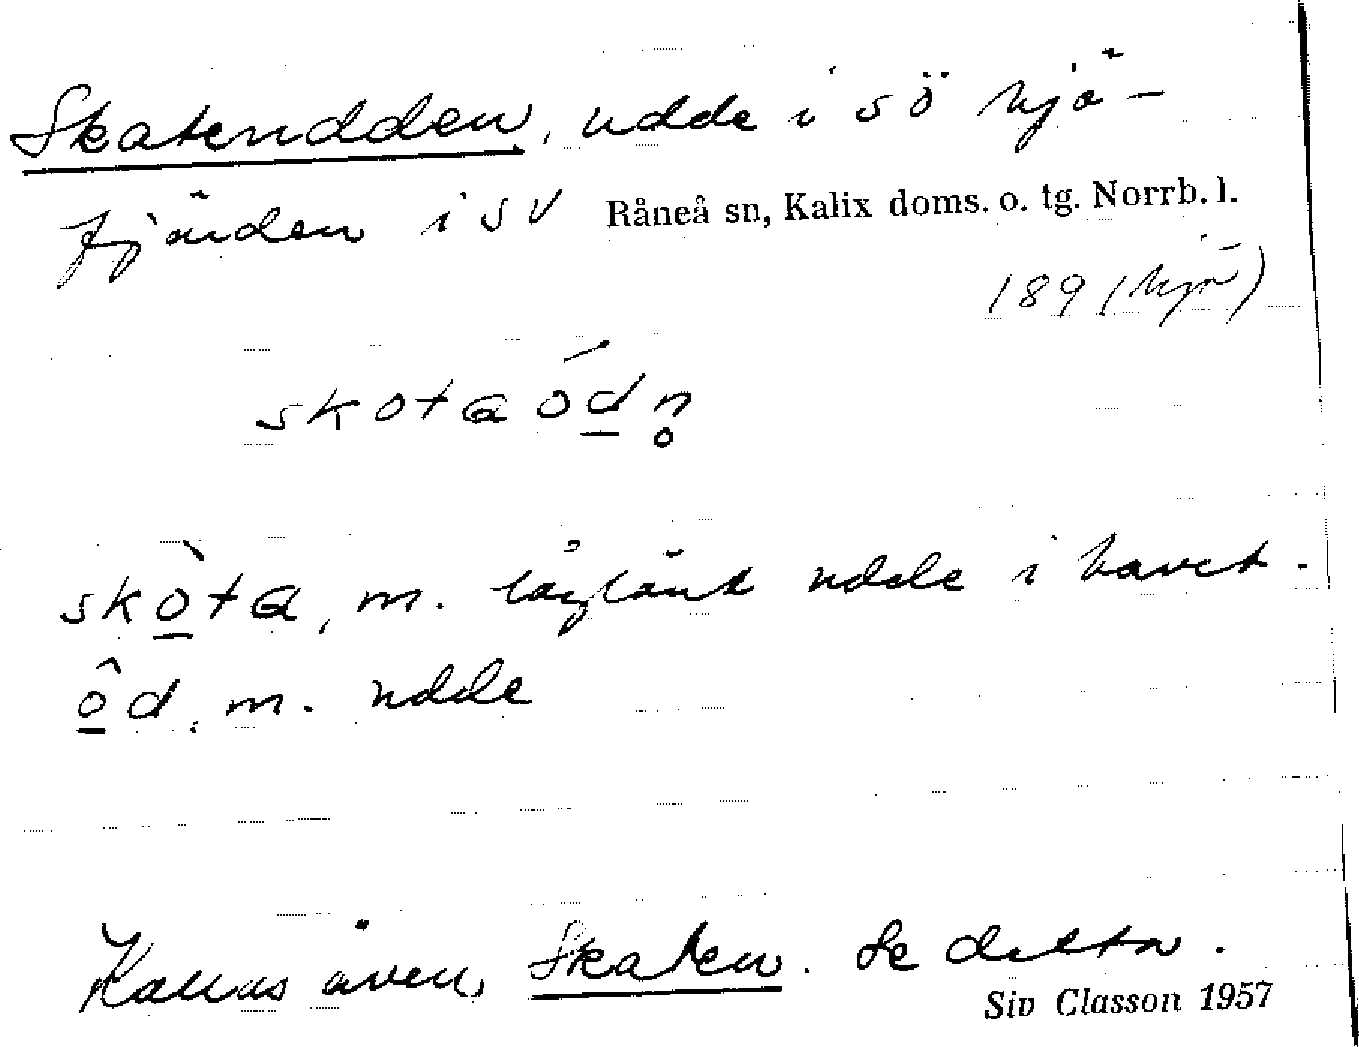 Skatudden, udde i sö Hjä-
fjärden i SV Råneå sn, Kalix doms. o. tg. Norrb. l.
189 (Hjä)
skotaód̲n̥
skò̲ta, m. låglänt udde i havet.
ô̲d, m. udde
Kallas även Skaten. Se detta.
Siv Classon 1957